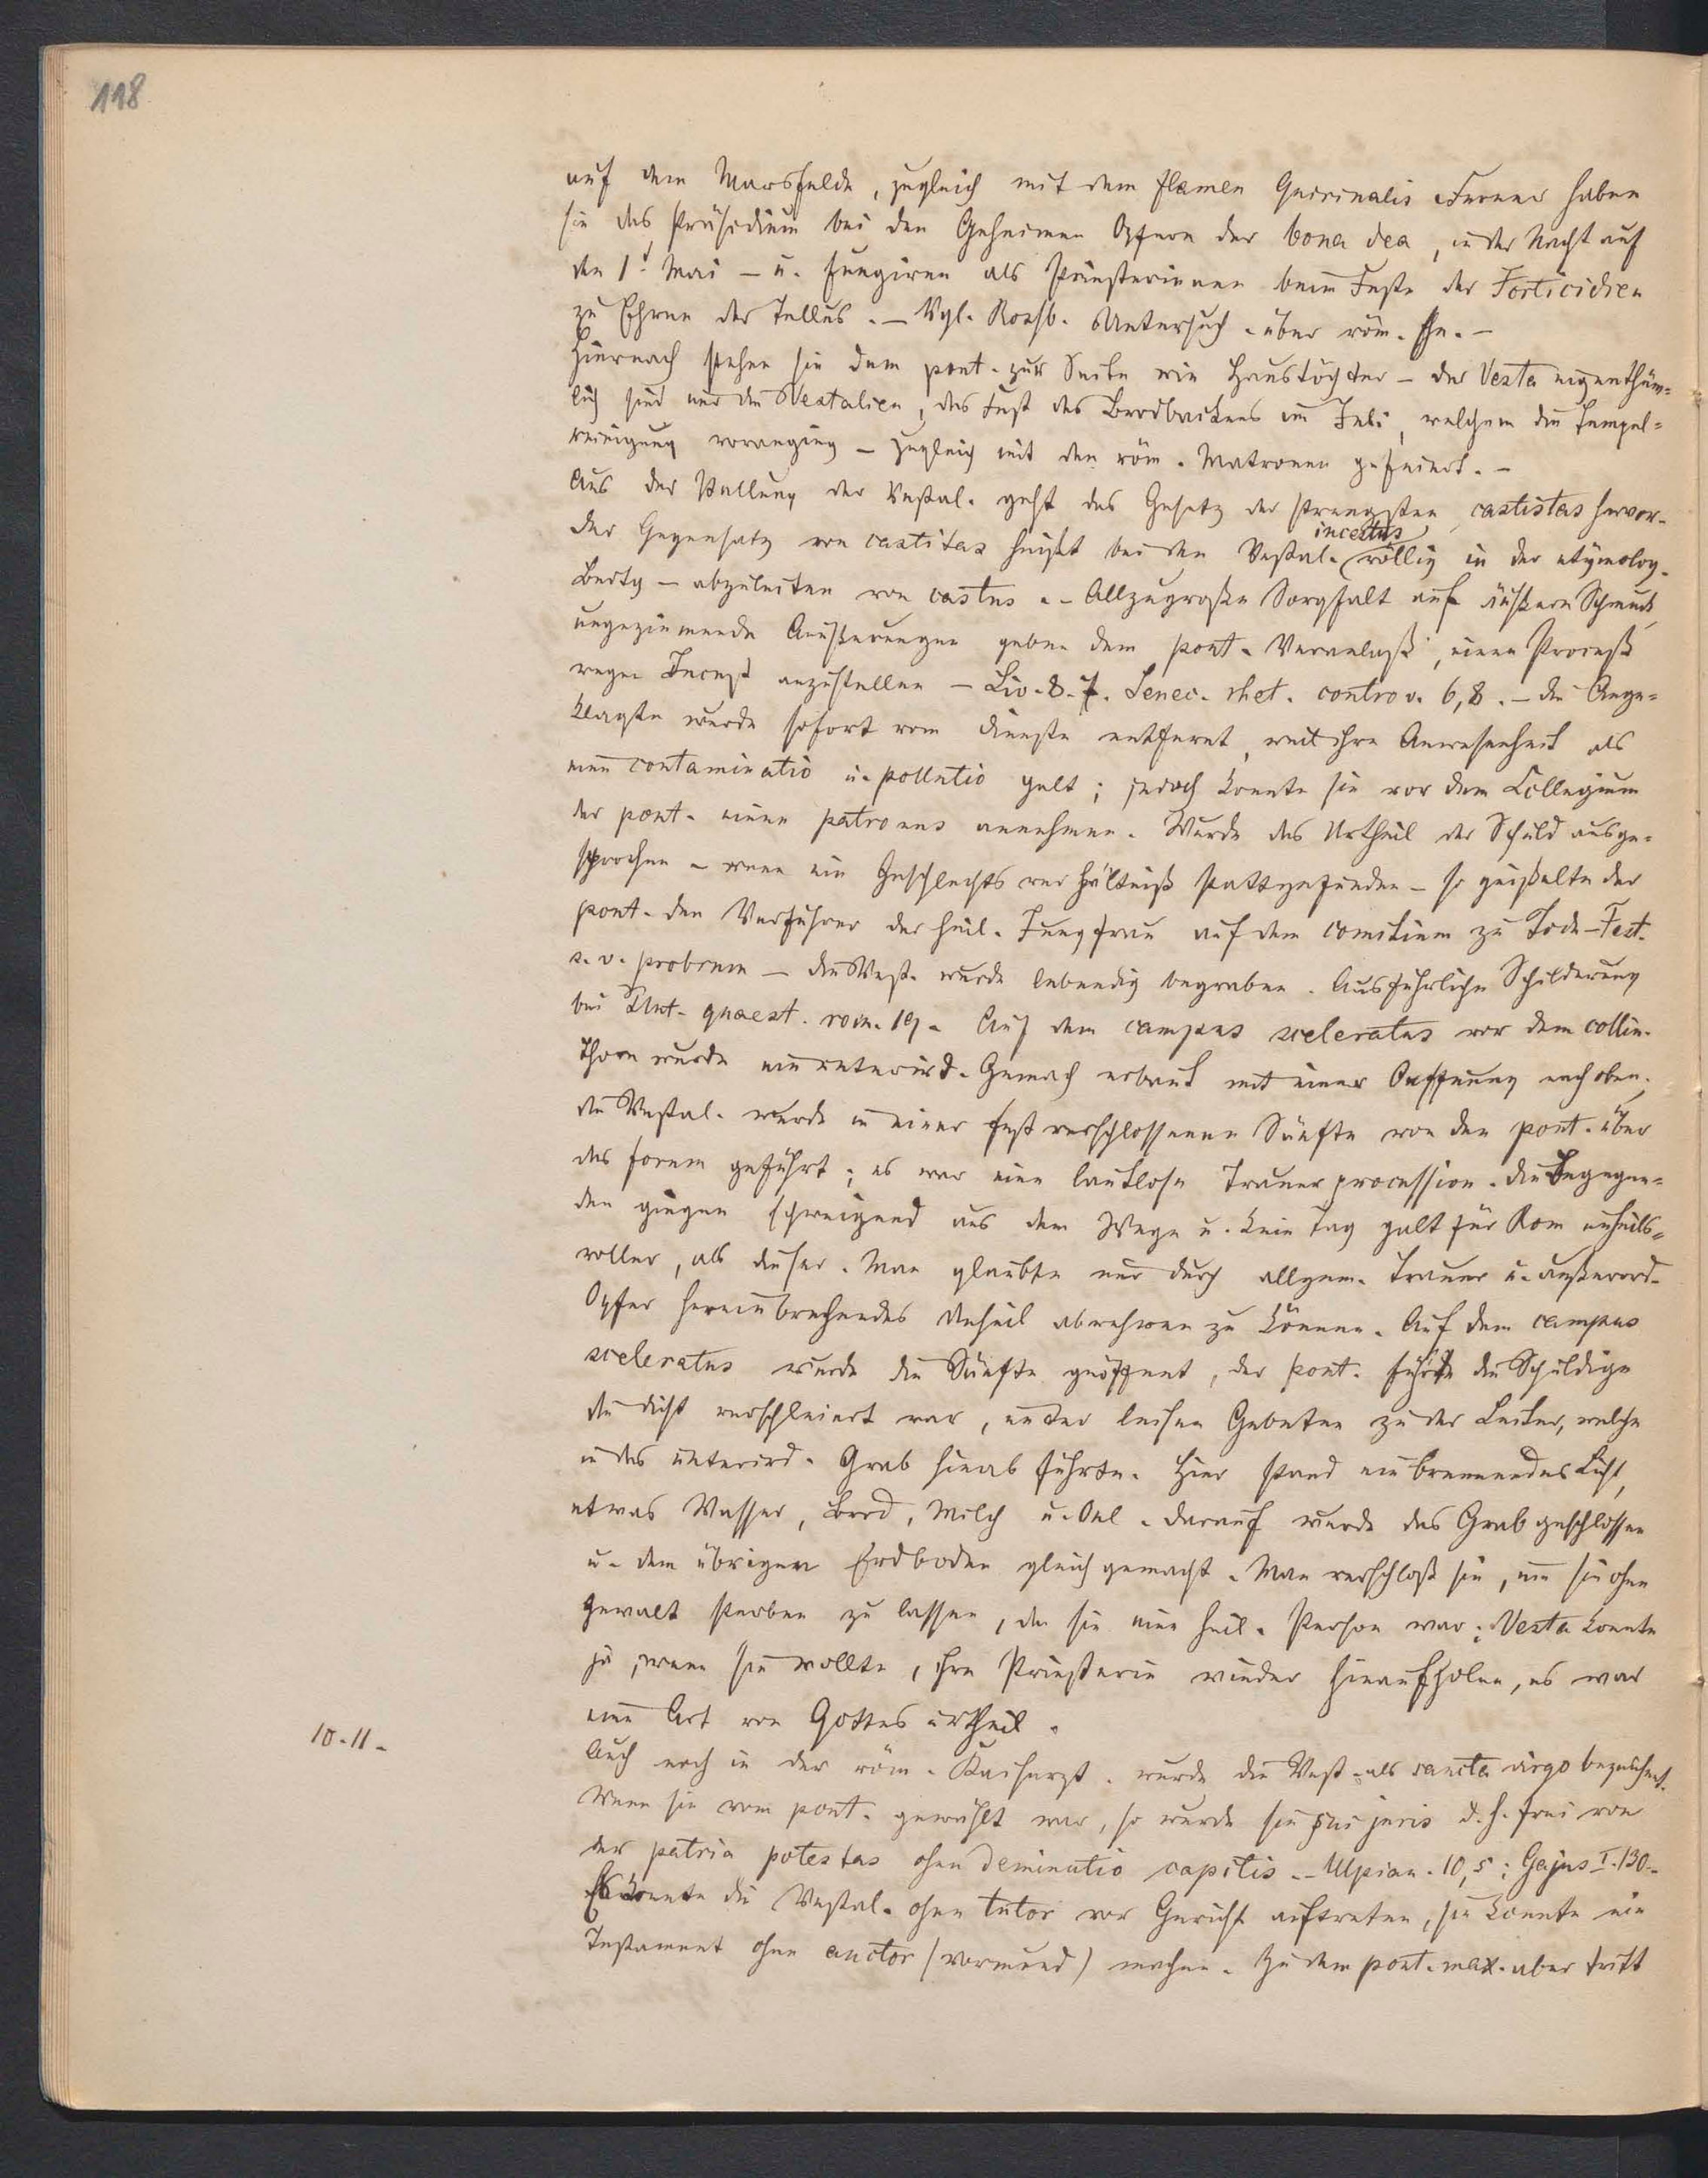 118
auf dem Marsfelde, zugleich mit dem flamen Quirinalis. Ferner haben
sie das Präsidium bei den Geheimen Opfern der bona dea, in der Nacht auf
den 1t. Mai – u. fungiren als Priesterinnen beim Feste der Forticidien
zu Ehren der Tellus. – Vgl. Rossb. Untersuch. über röm. Ehe. –
Hiernach stehen sie dem pont. zur Seite wie Haustöchter – der Vesta eigenthüm-
lich sind nur die Vestalien, das Fest des Brodbackens im Juli, welchem die Tempel-
reinigung voranging – zugleich mit den röm. Matronen gefeiert. –
Aus der Stellung der Vestal. geht das Gesetz der strengsten castitas hervor.
incestus
Der Gegensatz von castitas heißt bei den Vestal. völlig in der etymolog.
Bedtg – abzuleiten von castus. – Allzugroße Sorgfalt auf äußern Schmuck,
ungeziemende Aeußerungen geben dem pont. Veranlaß, einen Proceß
wegen Incest anzustellen – Liv. 8. 7. Senec. rhet. controv. 6,8. – Die Ange-
klagte wurde sofort vom Dienste entfernt, weil ihre Anwesenheit als
eine contaminatio u. pollutio galt; jedoch konnte sie vor dem Collegium
der pont. einen patronus annehmen. Wurde das Urtheil der Schuld ausge-
sprochen – wenn ein Geschlechtsverhältniß stattgefunden – so geißelte der
pont. den Verführer der heil. Jungfrau auf dem comitium zu Tode – Fest.
s. v. probrum – die Vest. wurde lebendig begraben. Ausführliche Schilderung
bei Plut. quaest. rom. 19. Auf dem campus sceleratus vor dem collin.
Thore wurde ein unterird. Gemach erbaut mit einer Oeffnung nach oben.
die Vestal. wurde in einer fest verschlossenen Sänfte von den pont. über
das forum geführt; es war eine lautlose Trauerprocession. Die Begegnen-
den gingen schweigend aus dem Wege u. kein Tag galt für Rom unheils-
voller, als dieser. Man glaubte nur durch allgem. Trauer u. außerord.
Opfer hereinbrechendes Unheil abwehren zu können. Auf dem campus
sceleratus wurde die Sänfte geöffnet, der pont. führte die Schuldige
die dicht verschleiert war, unter leisen Gebeten zu der Leiter, welche
in das unterird. Grab hinab führte. Hier stand ein brennendes Licht,
etwas Wasser, Brod, Milch u. Oel. Darauf wurde das Grab geschlossen
u. dem übrigen Erdboden gleich gemacht. Man verschloß sie, um sie ohne
Gewalt sterben zu lassen, da sie eine heil. Person war; Vesta konnte
ja, wenn sie wollte, ihre Priesterin wieder hinaufholen, es war
eine Art von Gottes urtheil.
10-11-
Auch noch in der röm. Kaiserzt. wurde die Vest. als sancta virgo bezeichnet.
Wenn sie vom pont. gewählt war, so wurde sie sui juris d. h. frei von
der patria potestas ohne deminutio capitis. – Ulpian. 10,5; Gajus I. 130. –
Es konnte die Vestal. ohne tutor vor Gericht auftreten, sie konnte ein
Testament ohne auctor (vormund) machen. Zu dem pont. max. aber tritt